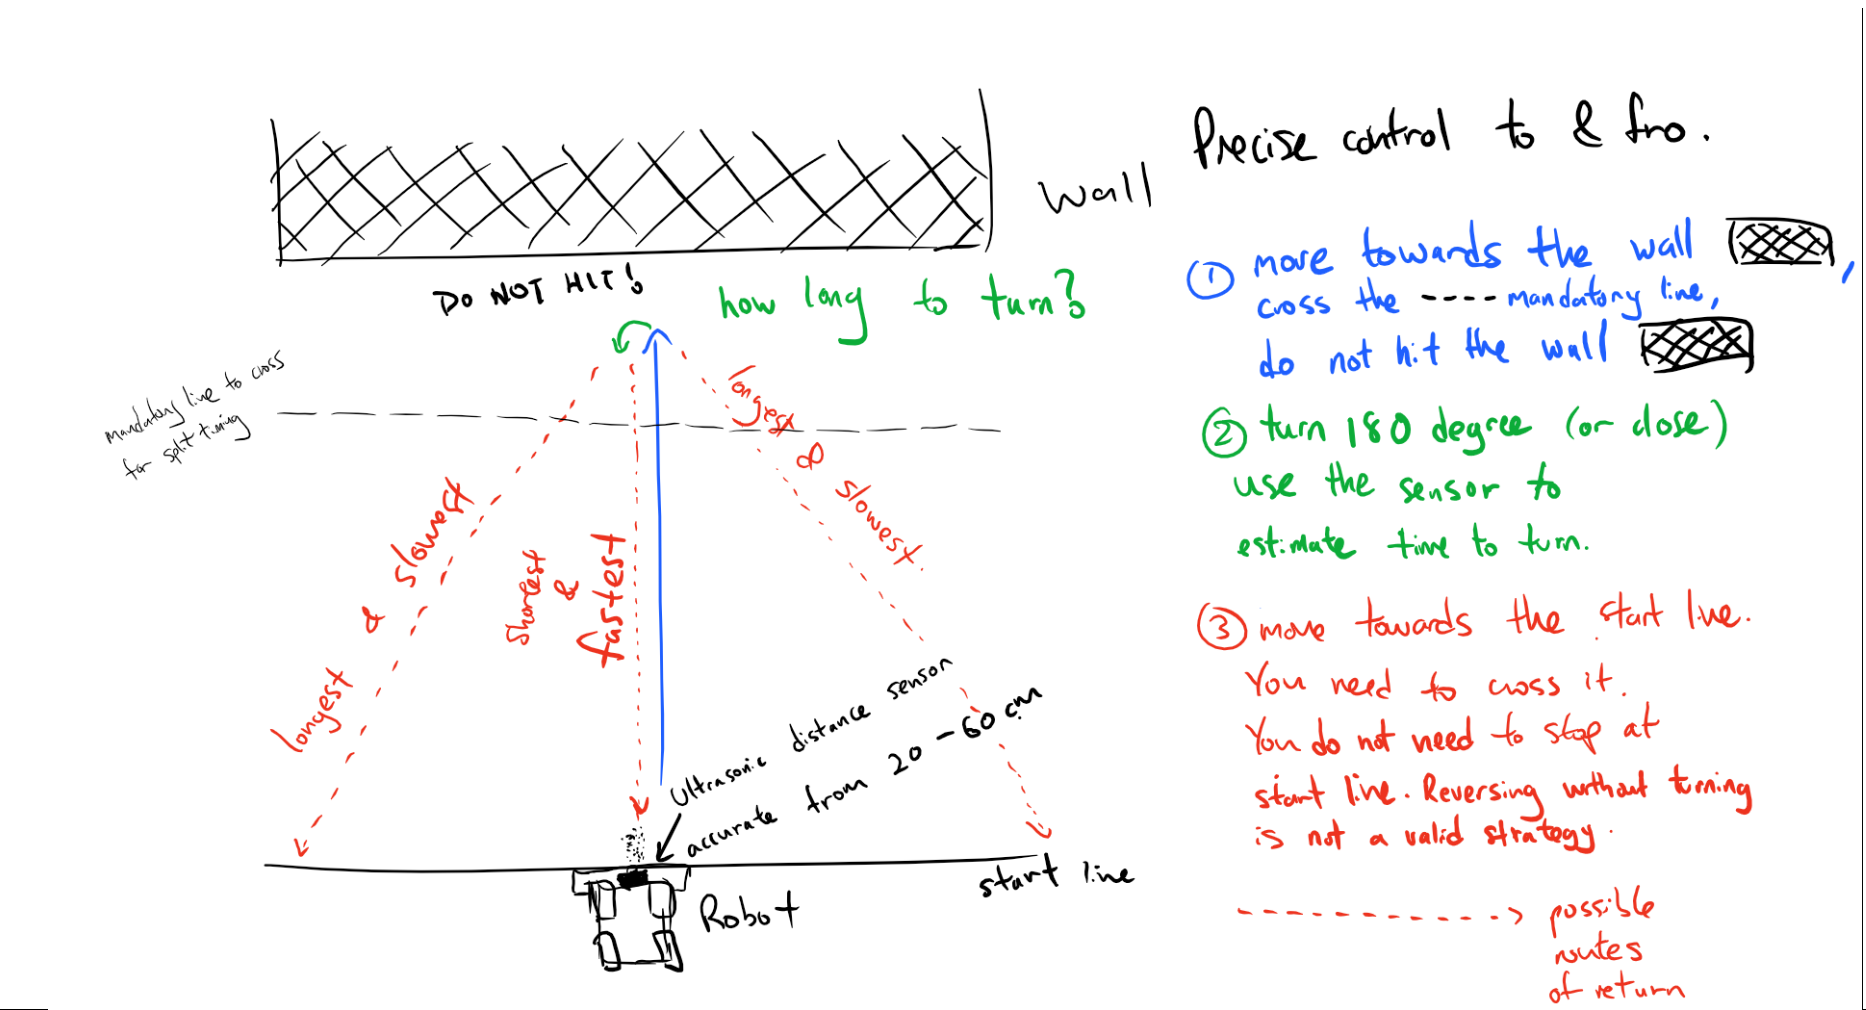 Precise control to & fro.
Wall
DO NOT HIT!
how long to turn?
mandatory line to cross
for split timing
longest & slowest
shortest
&
fastest
longest & slowest.
Ultrasonic distance sensor
accurate from 20 - 60 cm
start line
Robot
① move towards the wall ,
cross the ---- mandatory line,
do not hit the wall
② turn 180 degree (or close)
use the sensor to
estimate time to turn.
③ move towards the start line.
You need to cross it.
You do not need to stop at
start line. Reversing without turning
is not a valid strategy.
possible
routes
of return